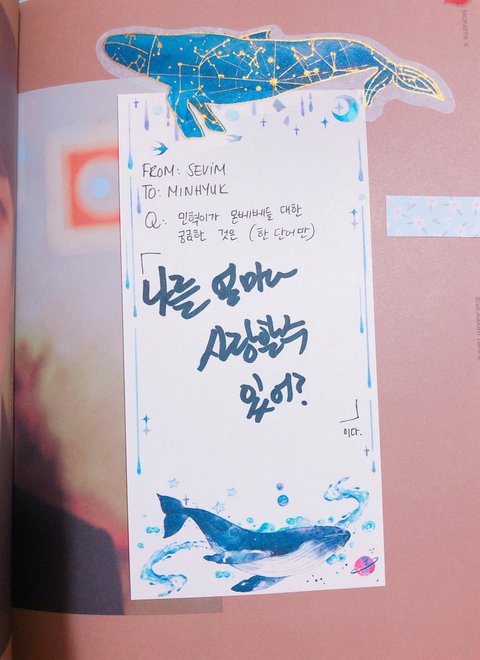 FROM: SEViM
TO: MINHYUK
Q: 민혁이가 몬베베들 대한
궁금한 것은 (한 단어만)
「
나를 얼마나
사랑할수
있어?
」
이다.
MONSTA X